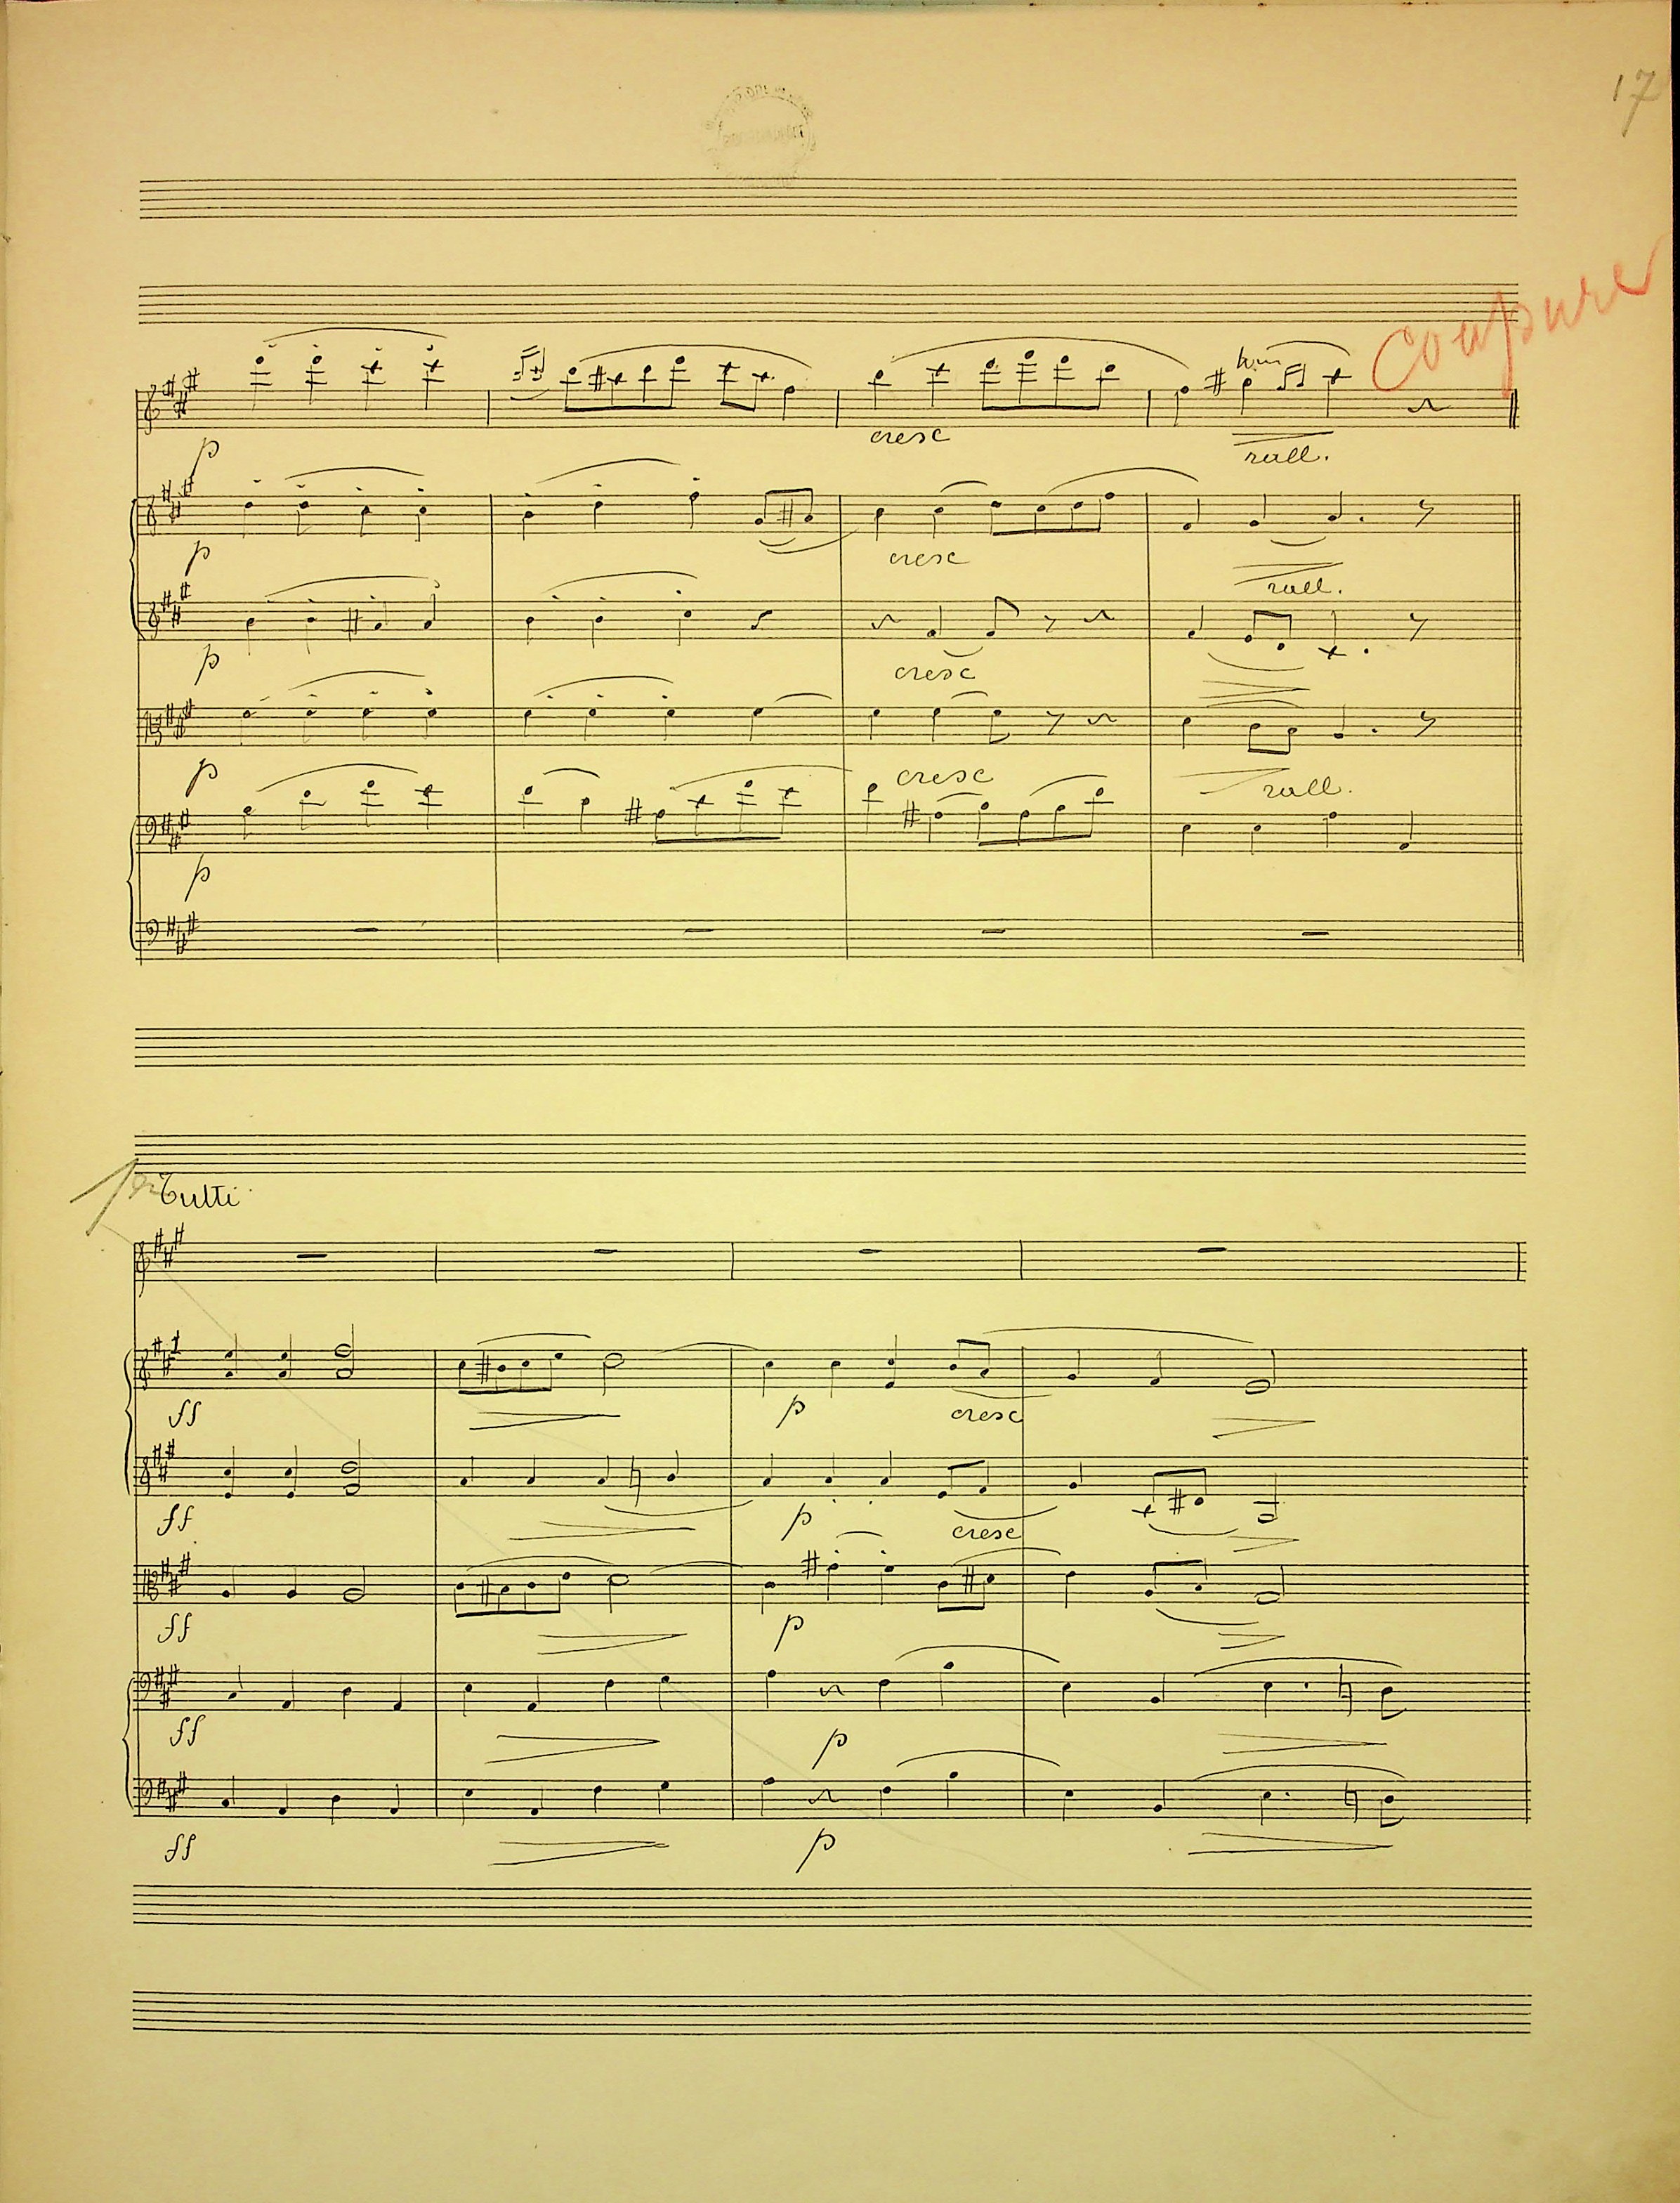 17
Coupure
p
cresc
rall.
p
cresc
rall.
p
cresc
p
cresc
rall.
p
1er Tutti
ff
p
cresc
ff
p
cresc
ff
p
ff
p
ff
p